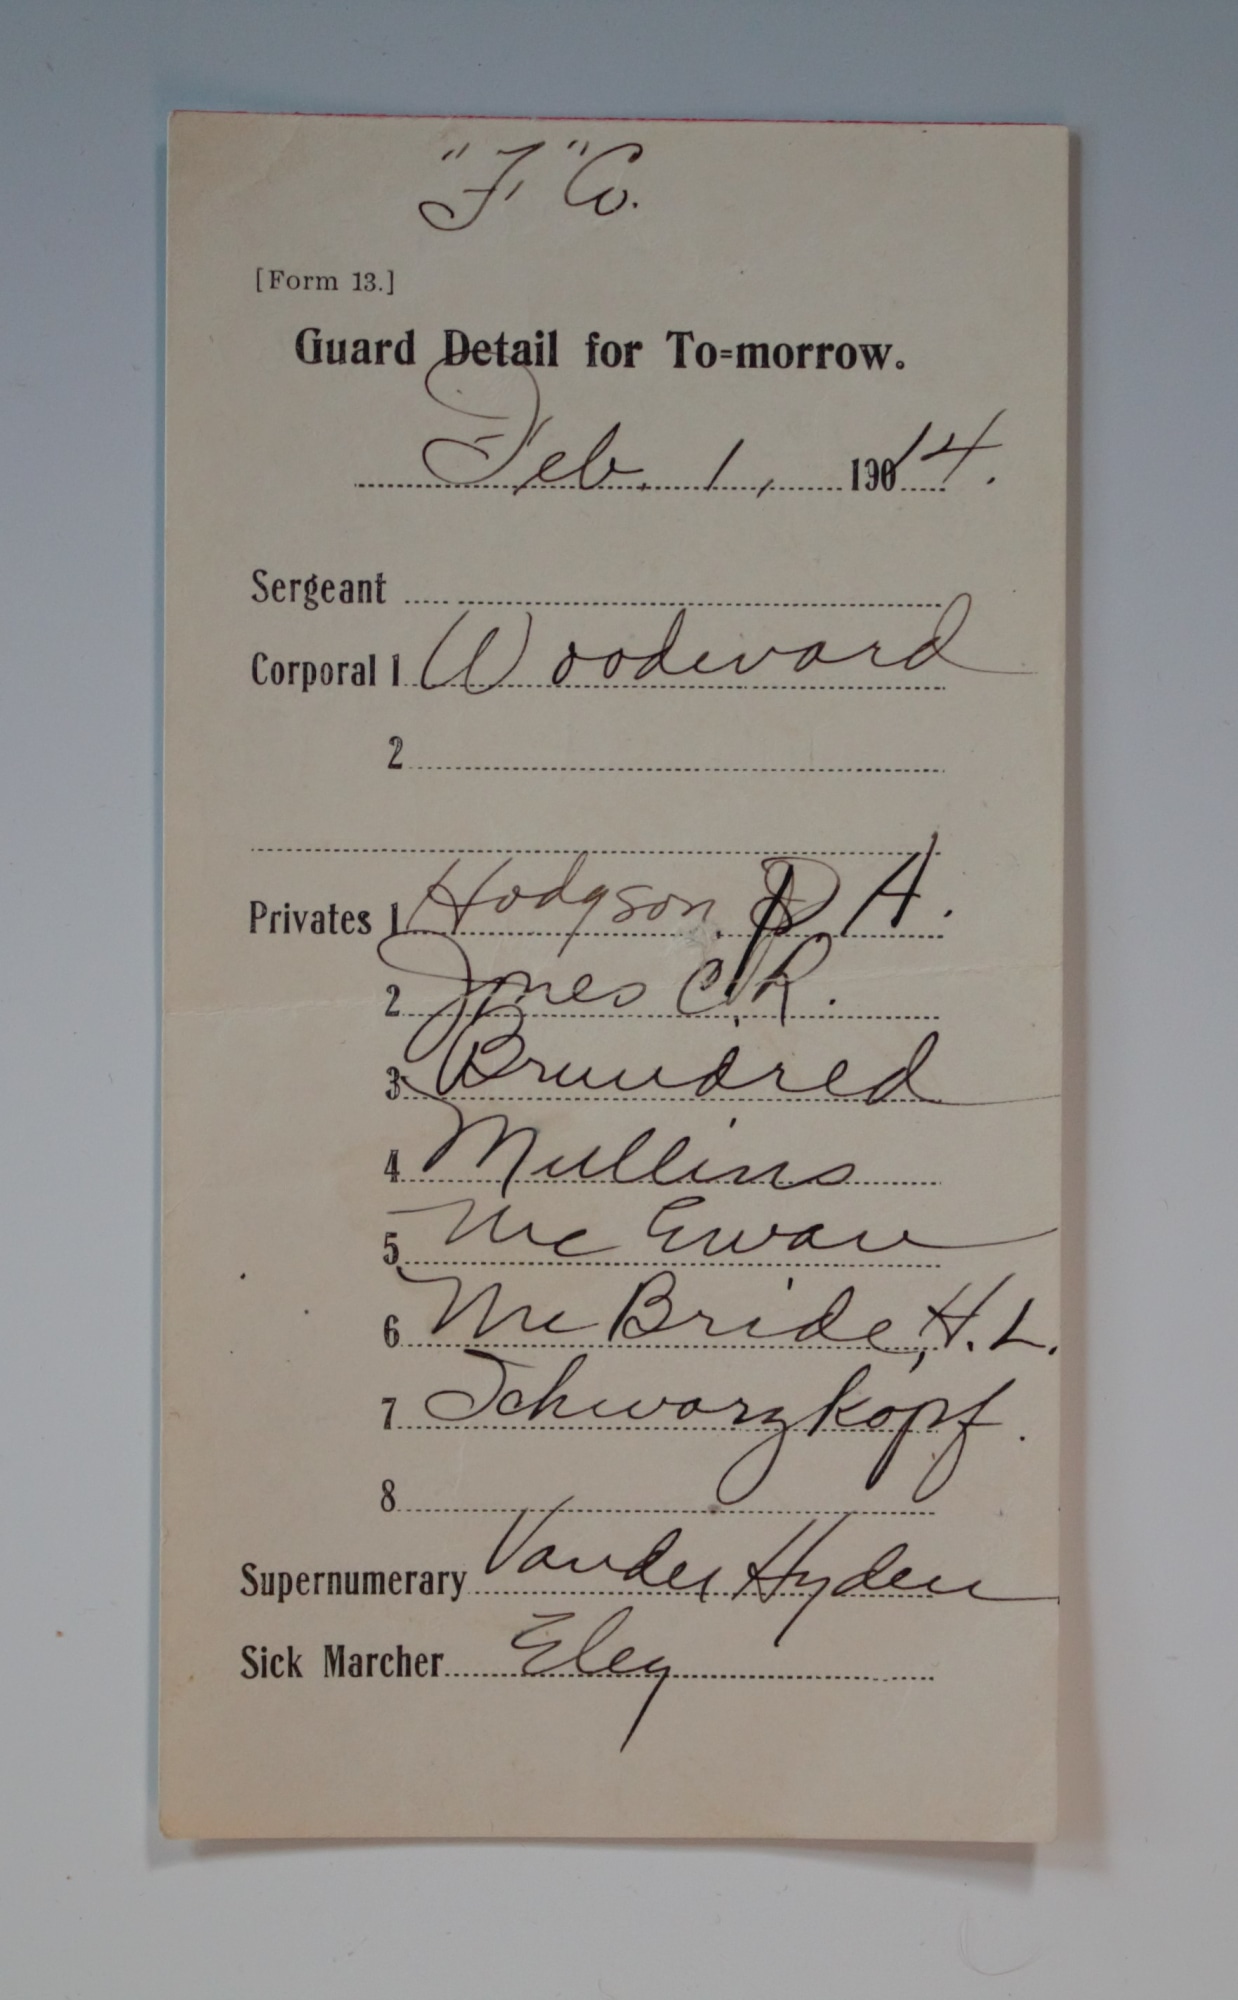 "F" Co.
[Form 13.]
Guard Detail for To=morrow.
Feb. 1, 1914.
Sergeant
Corporal 1 Woodward
2
Privates 1 Hodgson. P A.
2 Jones C. R.
3 Brundred
4 Mullins
5 Mc Ewan
6 Mc Bride, H. L.
7 Schwarzkopf.
8
Supernumerary Vander Hyden
Sick Marcher Eley